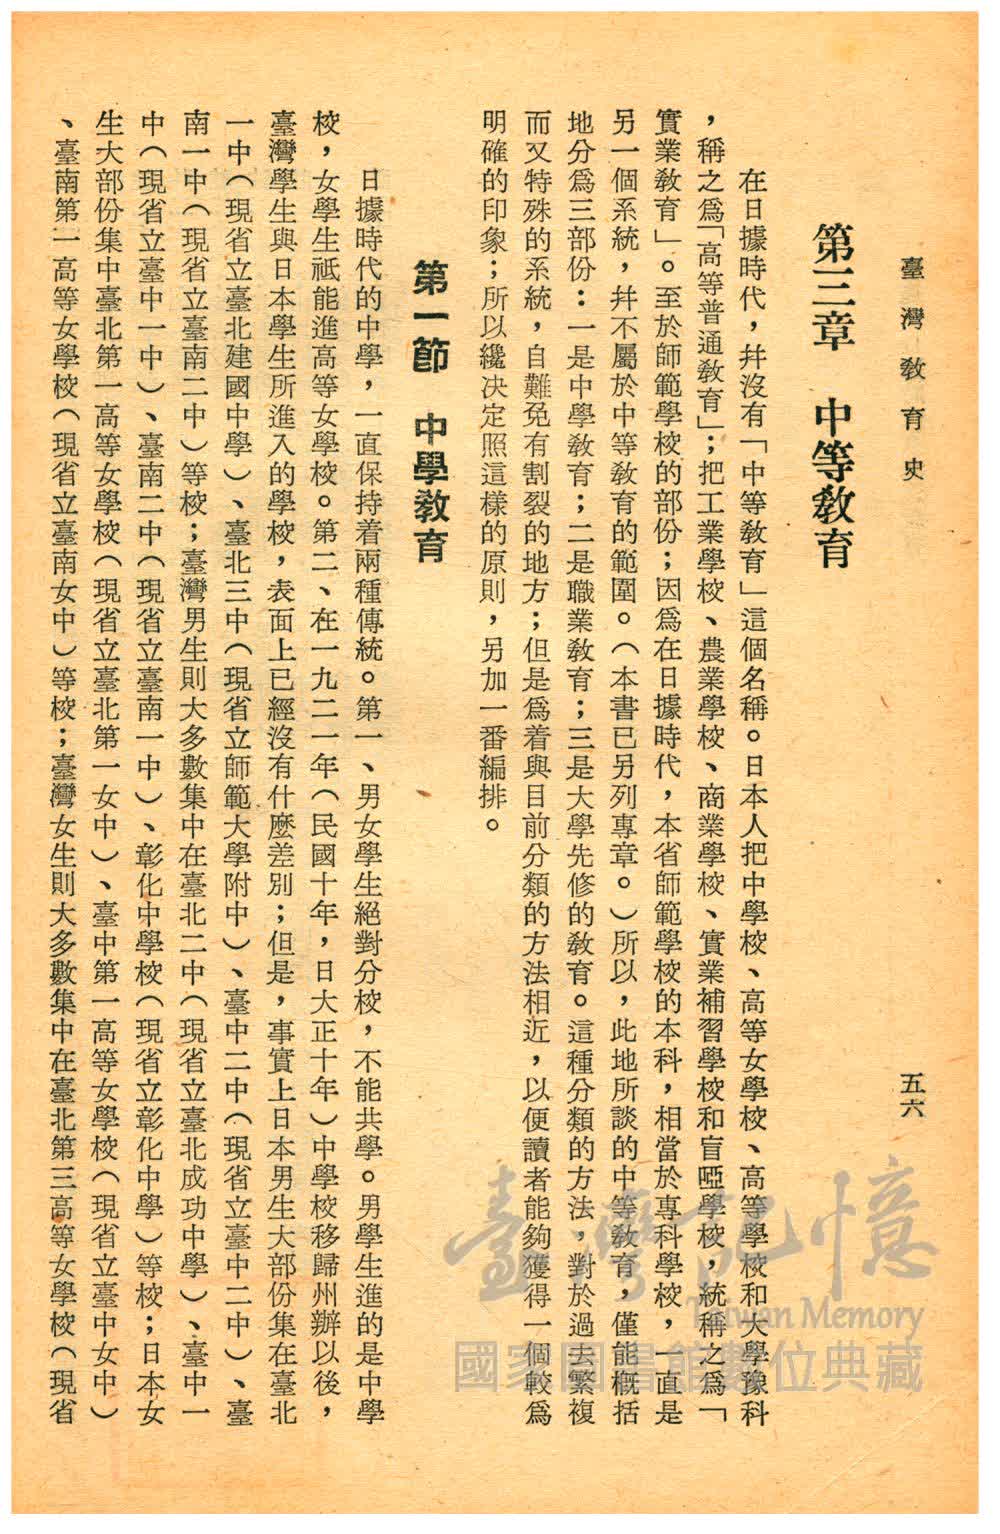 臺灣教育史
五六
第三章　中等教育
在日據時代，幷沒有「中等教育」這個名稱。日本人把中學校、高等女學校、高等學校和大學豫科
，稱之爲「高等普通教育」；把工業學校、農業學校、商業學校、實業補習學校和盲啞學校，統稱之爲「
實業教育」。至於師範學校的部份；因爲在日據時代，本省師範學校的本科，相當於專科學校，一直是
另一個系統，幷不屬於中等教育的範圍。（本書已另列專章。）所以，此地所談的中等教育，僅能概括
地分爲三部份：一是中學教育；二是職業教育；三是大學先修的教育。這種分類的方法，對於過去繁複
而又特殊的系統，自難免有割裂的地方；但是爲着與目前分類的方法相近，以便讀者能夠獲得一個較爲
明確的印象；所以纔決定照這樣的原則，另加一番編排。
第一節　中學教育
日據時代的中學，一直保持着兩種傳統。第一、男女學生絕對分校，不能共學。男學生進的是中學
校，女學生祗能進高等女學校。第二、在一九二一年（民國十年，日大正十年）中學校移歸州辦以後，
臺灣學生與日本學生所進入的學校，表面上已經沒有什麼差別；但是，事實上日本男生大部份集在臺北
一中（現省立臺北建國中學）、臺北三中（現省立師範大學附中）、臺中二中（現省立臺中二中）、臺
南一中（現省立臺南二中）等校；臺灣男生則大多數集中在臺北二中（現省立臺北成功中學）、臺中一
中（現省立臺中一中）、臺南二中（現省立臺南一中）、彰化中學校（現省立彰化中學）等校；日本女
生大部份集中臺北第一高等女學校（現省立臺北第一女中）、臺中第一高等女學校（現省立臺中女中）
、臺南第一高等女學校（現省立臺南女中）等校；臺灣女生則大多數集中在臺北第三高等女學校（現省
臺灣記憶
Taiwan Memory
國家圖書館數位典藏